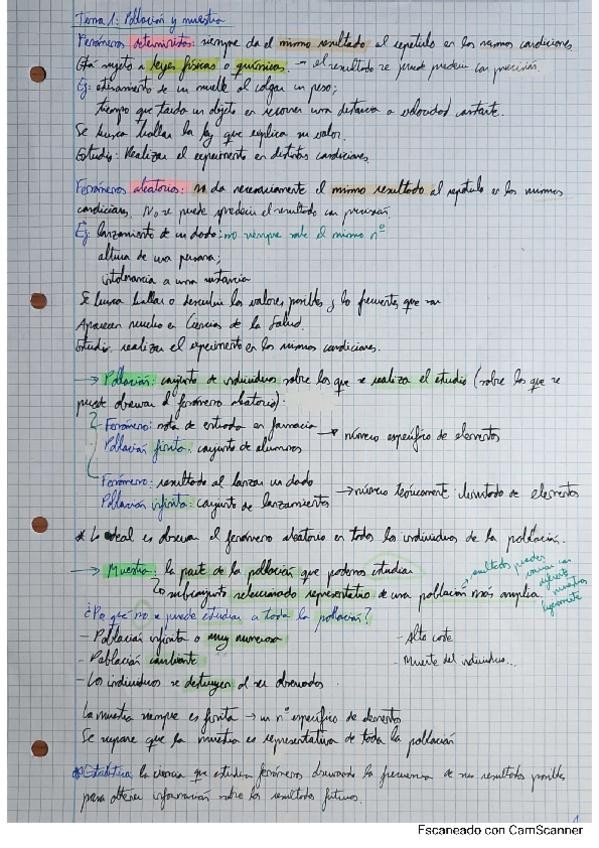 Tema 1: Población y muestra
Fenómenos deterministas: siempre da el mismo resultado al repetirlo en las mismas condiciones.
Está sujeto a leyes físicas o químicas. → el resultado se puede predecir con precisión.
Ej: estiramiento de un muelle al colgar un peso;
tiempo que tarda un objeto en recorrer una distancia a velocidad constante.
Se busca hallar la ley que explica su valor.
Estudio: Realizar el experimento en distintas condiciones.
Fenómenos aleatorios: no da necesariamente el mismo resultado al repetirlo en las mismas
condiciones. No se puede predecir el resultado con precisión.
Ej: lanzamiento de un dado: no siempre sale el mismo nº
altura de una persona;
intolerancia a una sustancia
Se busca hallar o descubrir los valores posibles y lo frecuentes que son
Aparecen mucho en Ciencias de la Salud.
Estudio: realizar el experimento en las mismas condiciones.
→ Población: conjunto de individuos sobre los que se realiza el estudio (sobre los que se
puede observar el fenómeno aleatorio).
Fenómeno: nota de entrada en farmacia
Población finita: conjunto de alumnos → número específico de elementos
Fenómeno: resultado al lanzar un dado
Población infinita: conjunto de lanzamientos → número teóricamente ilimitado de elementos
* Lo ideal es observar el fenómeno aleatorio en todos los individuos de la población.
→ Muestra: la parte de la población que podemos estudiar
↳ subconjunto seleccionado representativo de una población más amplia
→ resultados pueden
variar con
diferentes
muestras
ligeramente
¿Por qué no se puede estudiar a toda la población?
- Población infinita o muy numerosa - Alto coste
- Población cambiante - Muerte del individuo...
- Los individuos se destruyen al ser observados.
La muestra siempre es finita → un nº específico de elementos
Se supone que la muestra es representativa de toda la población
* Estadística: la ciencia que estudia fenómenos observando la frecuencia de sus resultados posibles
para obtener información sobre los resultados futuros.
1
Escaneado con CamScanner